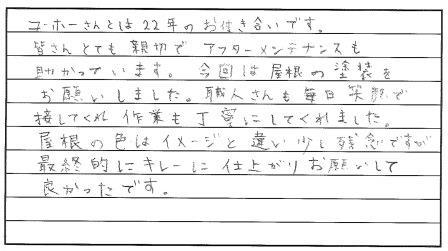 ユーホーさんとは22年のお付き合いです。
皆さんとても親切でアフターメンテナンスも
助かっています。今回は屋根の塗装を
お願いしました。職人さんも毎日笑顔で
接してくれ作業も丁寧にしてくれました。
屋根の色はイメージと違い少し残念ですが
最終的にキレーに仕上がりお願いして
良かったです。